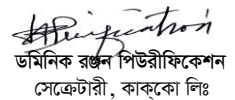 ডমিনিক রঞ্জন পিউরীফিকেশন
সেক্রেটারী, কাক্‌কো লিঃ